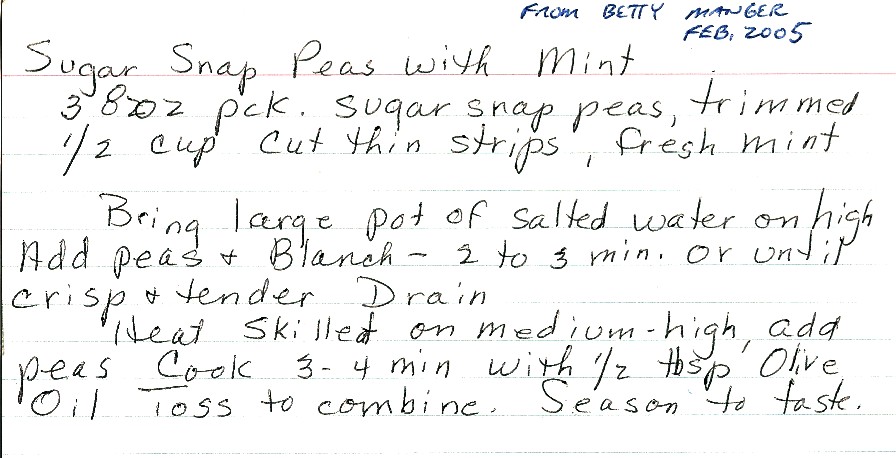 FROM BETTY MANGER
FEB. 2005
Sugar Snap Peas with Mint
3 8oz pck. sugar snap peas, trimmed
1/2 cup cut thin strips, fresh mint
Bring large pot of salted water on high
Add peas + Blanch - 2 to 3 min. or until
crisp + tender Drain
Heat skillet on medium-high, add
peas Cook 3-4 min with 1/2 tbsp Olive
Oil Toss to combine. Season to taste.